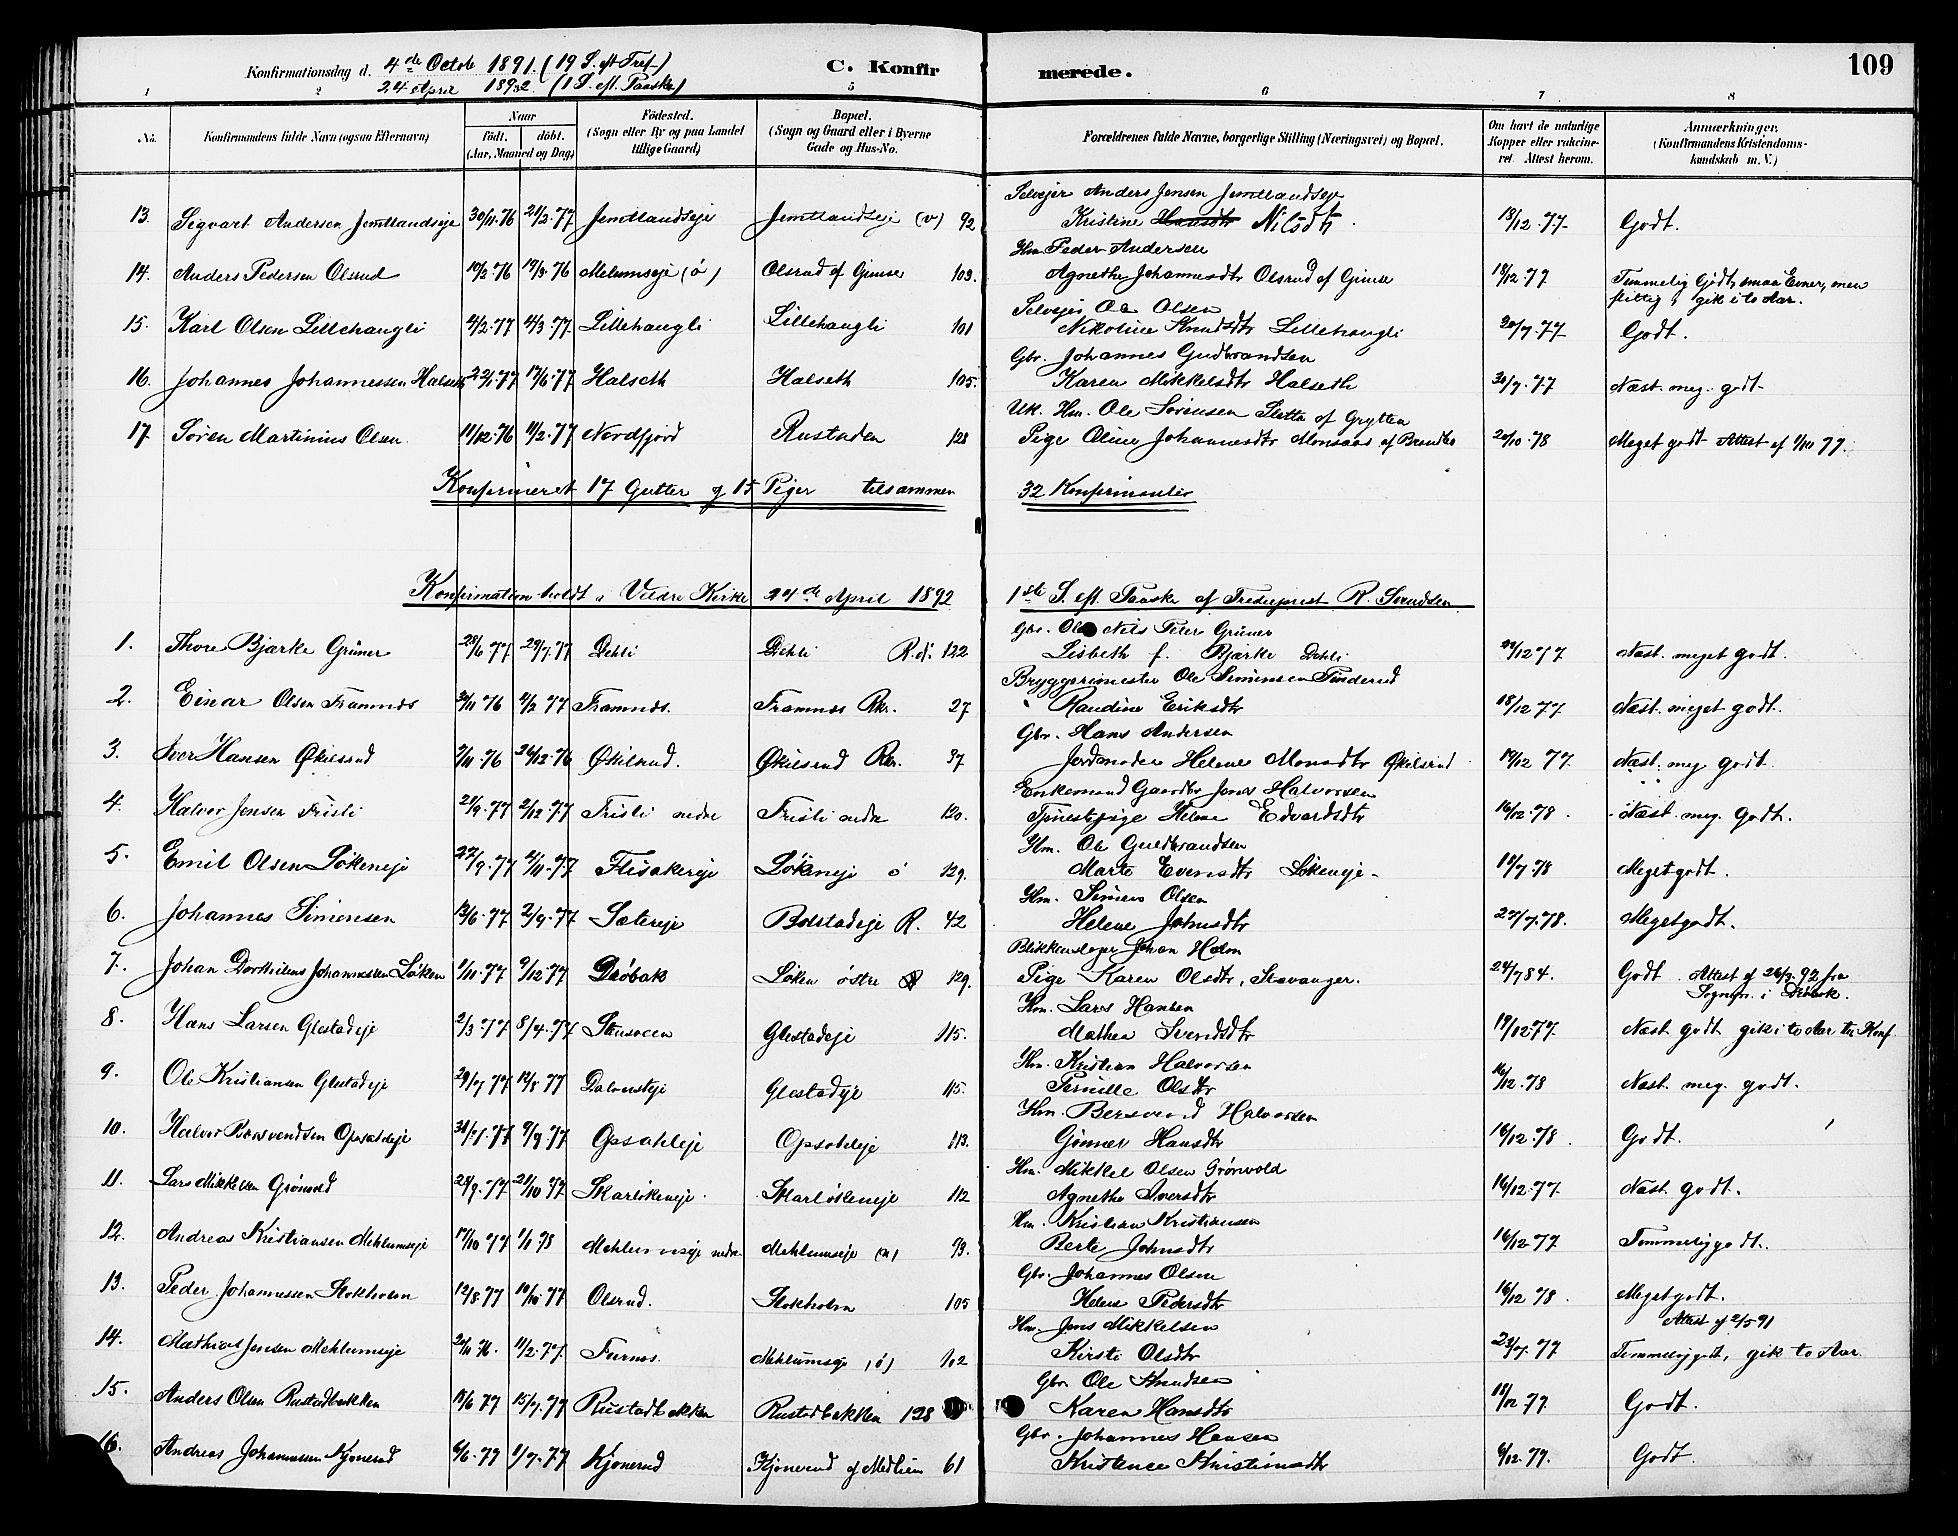 Konfirmationsdag d. 4de Octob 1891. (19 S. eft Tref.)
24 April 1892. (1 S. eft. Paaske)
C. Konfirmerede.
109
1 2 5 6 7 8
No.
Konfirmandens fulde Navn (ogsaa Efternavn)
Naar
født. døbt.
(Aar, Maaned og Dag)
Fødested.
(Sogn eller By og paa Landet
tillige Gaard)
Bopæl.
(Sogn og Gaard eller i Byerne
Gade og Hus-No.
Forældrenes fulde Navne, borgerlige Stilling (Næringsvei) og Bopæl.
Om havt de naturlige
Kopper eller vakcine-
ret. Attest herom.
Anmærkninger.
(Konfirmandens Kristendoms-
kundskab m. V.)
Selvejer Anders Jensen Jemtlandseje
13. Segvart Andersen Jemtlandseje 30/11.76 21/2.77 Jemtlandseje Jemtlandseje (v) 92 Kristine Nilsdtr 18/12.77 Godt.
Hm Peder Andersen
14. Anders Pedersen Olsrud 10/2.76 19/3.76 Melumseje (ö) Olsrud af Gjerse 103. Agnethe Johannesdtr Olsrud af Gjerse 18/12.77 Temmelig Godt, smaa Evner, men
flittig, gik i to Aar.
Selvejer Ole Olsen
15. Karl Olsen Lillehaugli 4/2.77 4/3.77. Lillehaugli Lillehaugli 101 Nikoline Knudsdtr Lillehaugli 30/7.77 Godt.
Gbr. Johannes Gudbrandsen
16. Johannes Johannessen Halseth 22/1.77 17/6.77 Halseth Halseth 105. Karen Mikkelsdtr Halseth 30/7.77 Næst. meg. godt.
Uk. Hm. Ole Sörensen Sletta af Grytten
17 Sören Martinius Olsen 11/12.76 11/2.77 Nordfjord Rustaden 128 Pige Oline Johannesdtr Monsaas af 20/10.78 Meget godt Attest af 1/10 77.
Konfirmeret 17 Gutter og 15 Piger tilsammen 32 Konfirmanter
Konfirmation holdt i Veldre Kirke 24de April 1892 1ste S. eft. Paaske af Sogneprest R. Svendsen
Gbr. Nils Peter Grüner
1. Thore Bjarke Grüner 28/6 77 29/7.77 Dehli Dehli R.d. 122 Lisbeth f. Bjerke Dehli 27/12 77 Næst. meget godt.
Bryggerimester Ole Simensen Tinderud
2. Einar Olsen Framnæs 30/11 76 4/2 77 Framnæs. Framnæs Rkr. 27 Randine Eriksdtr 18/12 77 Næst. meget godt.
Gbr. Hans Andersen
3. Iver Hansen Økilsrud 2/11.76 26/12.76 Økilsrud. Økilsrud Rkr. 37 Jordmoder Helene Monsdtr Økilsrud 19/12 77. Næst. meg. godt.
Enkemand Gaardbr Jens Halvorsen
4. Halvor Jensen Frisli 21/9.77 2/12.77 Frisli nedre Frisli nedre 120. Tjenestpige Helene Edvardsdtr 16/12.78. Næst. meg. Godt.
Hm. Ole Guldbrandsen
5. Emil Olsen Lökeneje 22/9.77 4/11.77 Flisakereje Lökeneje ö 129. Marte Evensdtr Lökeneje 18/7.78 Meget godt.
Hm. Simen Olsen
6. Johannes Simensen 13/6.77 2/9.77 Sætereje Bolstadeje R. 42 Helene Johnsdtr 27/7.78. Meget godt.
Blikkenslager Johan Holm
7. Johan Johannessen Löken 1/11.77 9/12.77 Dröbak Löken östre 129. Pige Karen Olsdtr, Stavanger. 24/7 84. Godt. Attest af 26/3.92 fra
Sognepr. i Dröbak.
Hm. Lars Hansen
8. Hans Larsen Glestadeje 2/3.77 8/4.77 Stensveen Glestadeje 115. Mathea Svendsdtr 19/12 77 Næst godt gik i to Aar til Konf
Hm. Kristian Halvorsen
9. Ole Kristiansen Glestadeje 29/7.77 12/8 77 Glestadeje 115. Pernille Olsdtr 16/12.78 Næst. meg. godt.
Hm. Bersvend Halvorsen
10. Halvor Bersvendsen Opsahleje 31/7.77 9/9.77 Opsahleje Opsahleje 113. Gönner Hansdtr 16/12.78 Godt.
Hm. Mikkel Olsen Grönvold
11. Lars Mikkelsen Grönvold 28/9.77 21/10 77 Skarlökeneje Skarlökeneje 112 Agnethe Iversdtr 16/12.77. Næst godt.
Hm. Kristian Kristiansen
12. Andreas Kristiansen Mehlumseje 17/10 77 1/1 78 Mehlumseje nedre Mehlumseje (n) 93. Berte Johnsdtr 16/12.77 Temmelig godt.
Gbr. Johannes Olsen
13. Peder Johannessen Stokholm 12/8.77 14/10.77 Olsrud. Stokholm 105 Helene Pedersdtr 16/12 78. Meget godt.
Attest af 2/5 91
Hm. Jens Mikkelsen
14. Mathias Jensen Mehlumseje 20/11 76. 11/2.77. Furnæs. Mehlumseje (ö) 102 Kirsti Olsdtr 23/7.77 Temmelig godt, gik to Aar.
Gbr Ole Knudsen
15. Anders Olsen Rustadbakken 18/6 77 15/7.77 Rustadbakken Rustadbakken 128 Karen Hansdtr 18/12 77 Godt.
Gbr. Johannes Hansen
16. Andreas Johannessen Kjonerud 6/6.77 1/7.77 Kjonerud Kjonerud af Medlien 61 Kristence Kristiansdtr 6/12.77. Godt.